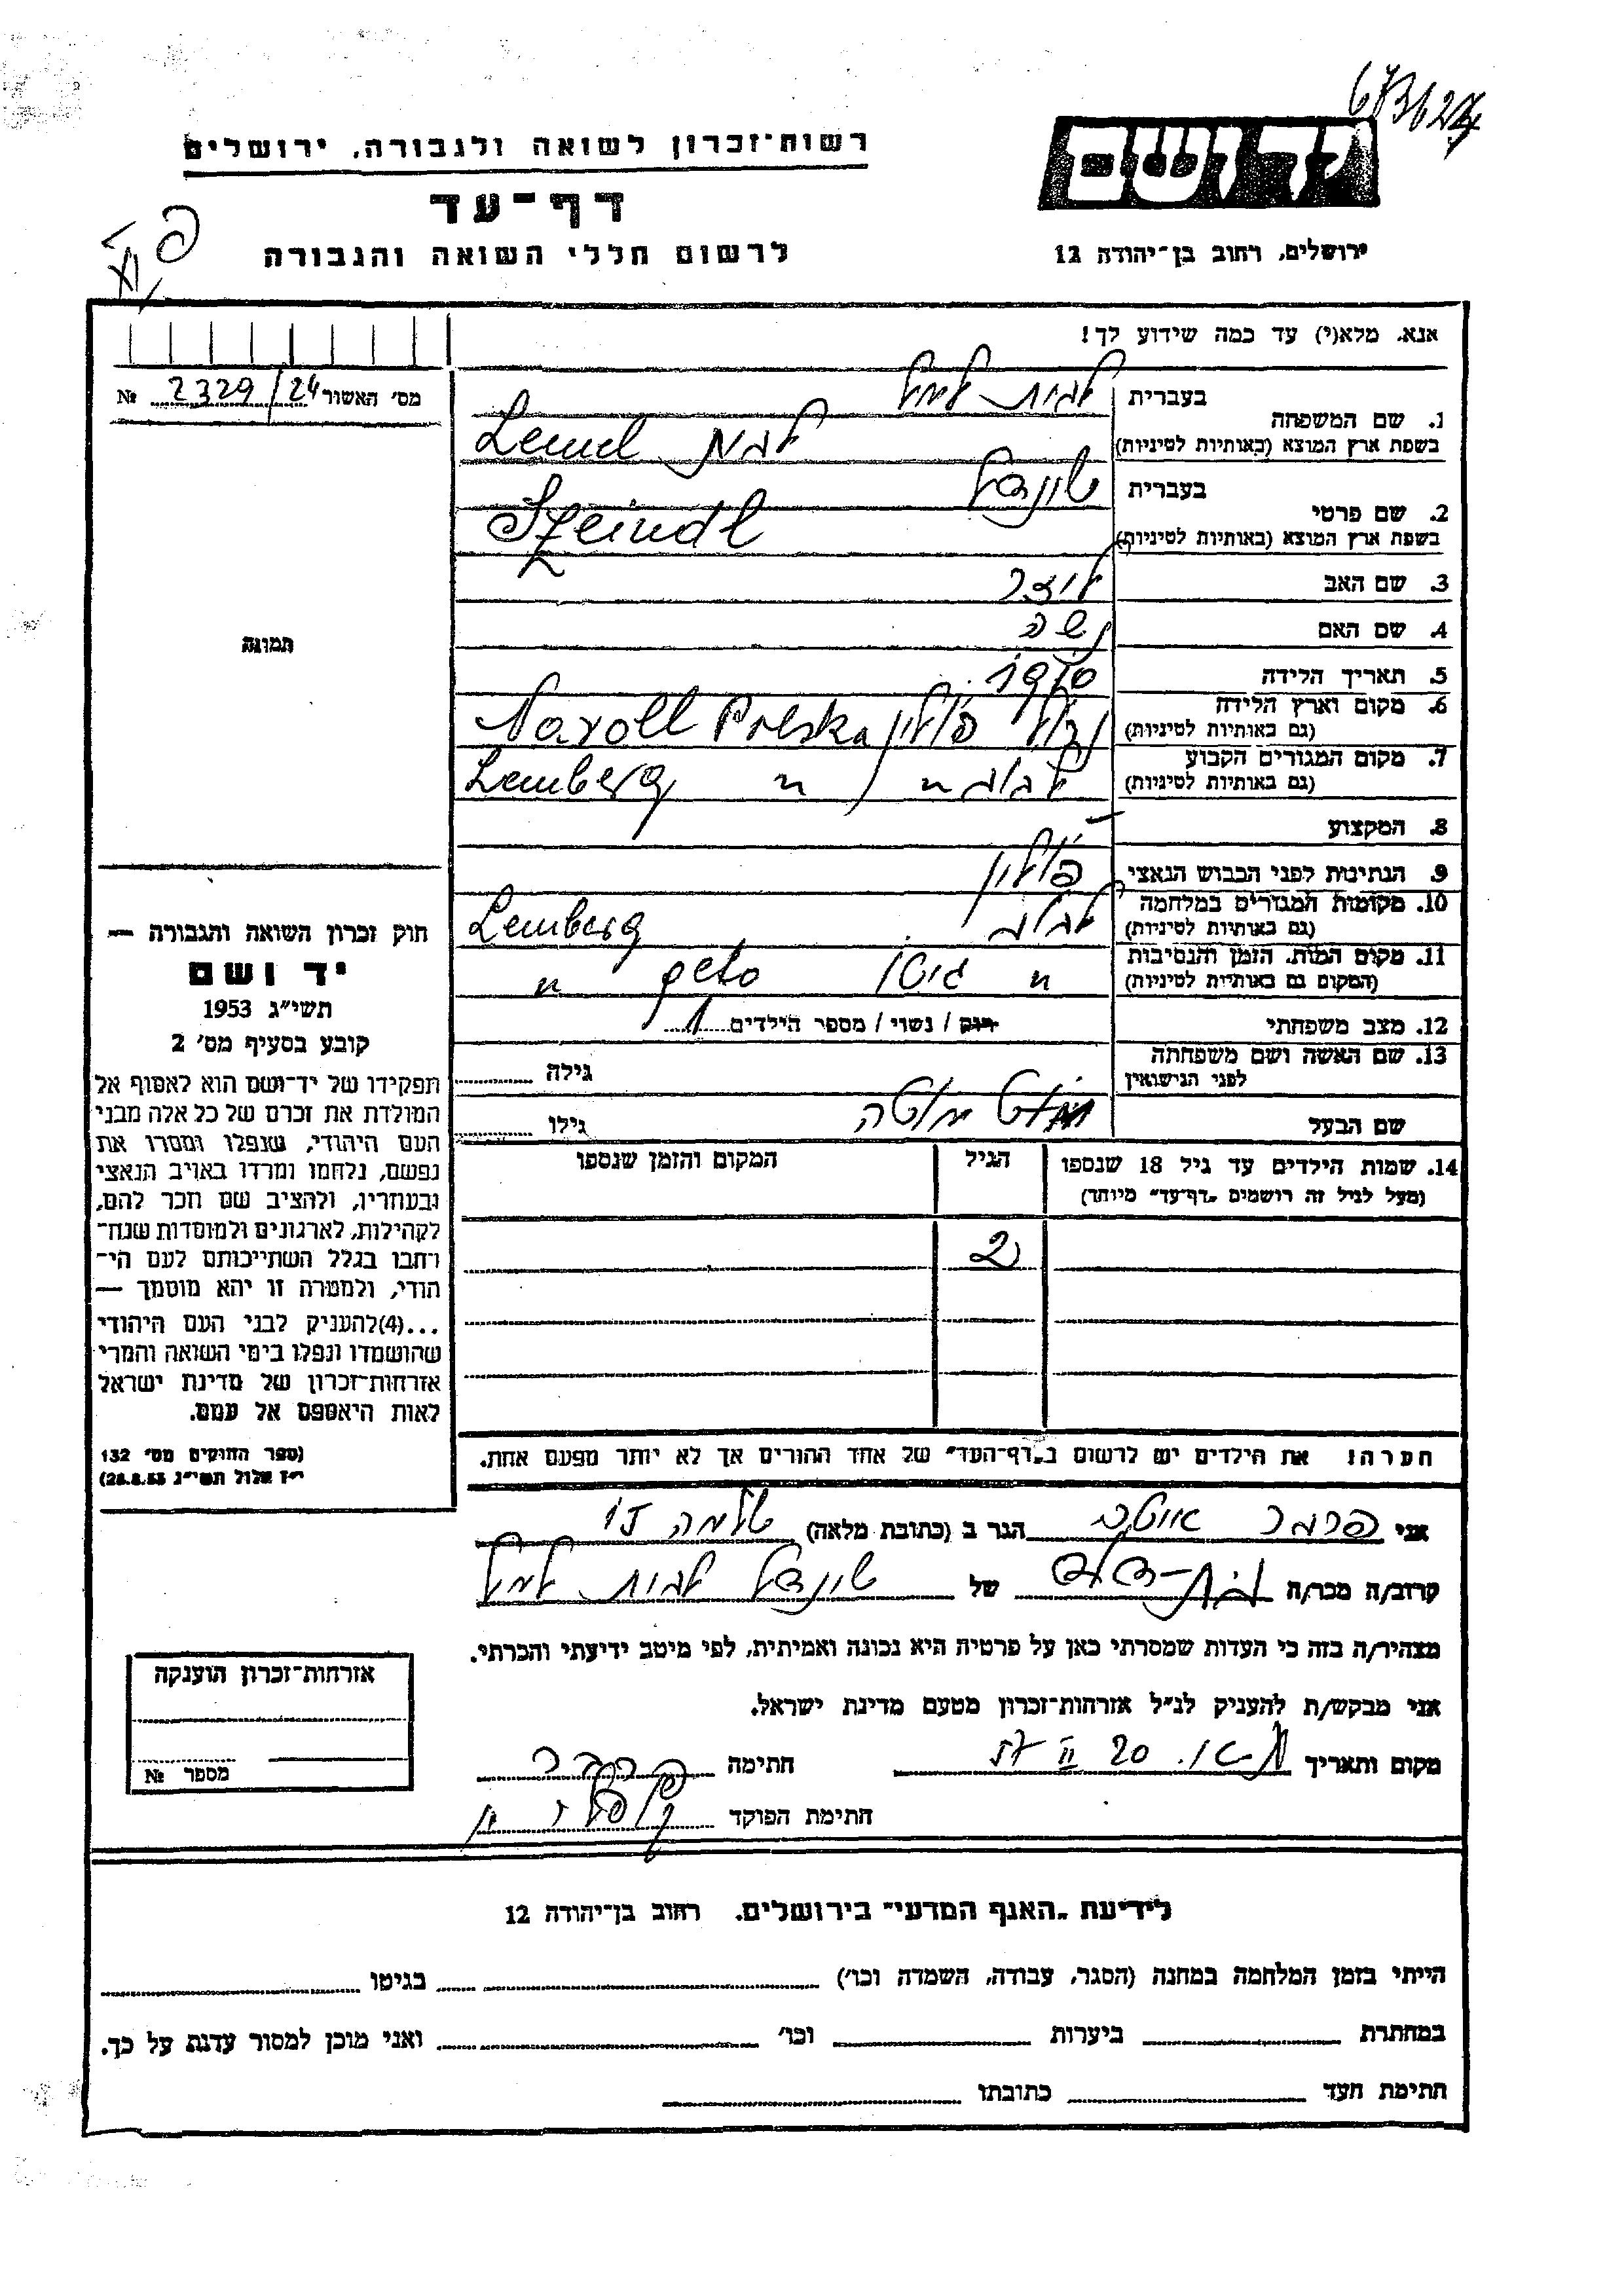 רשות־זכרון לשואה ולגבורה, ירושלים
יד ושם
דף־עד
לרשום חללי השואה והגבורה
ירושלים, רחוב בן־יהודה 12
אנא, מלא(י) עד כמה שידוע לך!
מס׳ האשור 2329/24 №
1. שם המשפחה
בעברית לבית למל
בשפת ארץ המוצא (באותיות לטיניות) לבית Lemel
2. שם פרטי
בעברית שיינדל
בשפת ארץ המוצא (באותיות לטיניות) Szeindl
3. שם האב
4. שם האם
5. תאריך הלידה
6. מקום וארץ הלידה
(גם באותיות לטיניות) נרול פולין Naroll Polska
7. מקום המגורים הקבוע
(גם באותיות לטיניות) לבוב " " Lemberg
8. המקצוע –
9. הנתינות לפני הכבוש הנאצי פולין
10. מקומות המגורים במלחמה
(גם באותיות לטיניות) לבוב Lemberg
11. מקום המות, הזמן והנסיבות
(המקום גם באותיות לטיניות) " גיטו geto "
12. מצב משפחתי רוק / נשוי / מספר הילדים 1
13. שם האשה ושם משפחתה
לפני הנישואין גילה
שם הבעל גילו
14. שמות הילדים עד גיל 18 שנספו
(מעל לגיל זה רושמים „דף־עד״ מיוחד)
הגיל
המקום והזמן שנספו
2
הערה! את הילדים יש לרשום ב„דף־העד״ של אחד ההורים אך לא יותר מפעם אחת.
תמונה
חוק זכרון השואה והגבורה —
יד ושם
תשי״ג 1953
קובע בסעיף מס׳ 2
תפקידו של יד־ושם הוא לאסוף אל
המולדת את זכרם של כל אלה מבני
העם היהודי, שנפלו ומסרו את
נפשם, נלחמו ומרדו באויב הנאצי
ובעוזריו, ולהציב שם וזכר להם,
לקהילות, לארגונים ולמוסדות שנח־
רבו בגלל השתייכותם לעם הי־
הודי, ולמטרה זו יהא מוסמך —
...(4) להעניק לבני העם היהודי
שהושמדו ונפלו בימי השואה והמרי
אזרחות־זכרון של מדינת ישראל
לאות היאספם אל עמם.
(ספר החוקים מס׳ 132
י״ז אלול תשי״ג 28.8.53)
אני הגר ב (כתובת מלאה)
קרוב/ה מכר/ה בת-דוד של שיינדל לבית למל
מצהיר/ה בזה כי העדות שמסרתי כאן על פרטיה היא נכונה ואמיתית, לפי מיטב ידיעתי והכרתי.
אני מבקש/ת להעניק לנ״ל אזרחות־זכרון מטעם מדינת ישראל.
מקום ותאריך 20 II 57 חתימה
חתימת הפוקד
אזרחות־זכרון הוענקה
מספר №
לידיעת „האגף המדעי״ בירושלים, רחוב בן־יהודה 12
הייתי בזמן המלחמה במחנה (הסגר, עבודה, השמדה וכו׳) בגיטו
במחתרת ביערות וכו׳ ואני מוכן למסור עדות על כך.
חתימת העד כתובתו